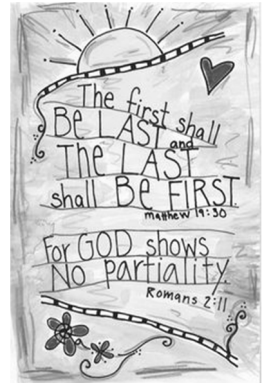 The first shall
Be LAST and
The LAST
shall Be FIRST.
matthew 19:30
For GOD shows
NO partiality.
Romans 2:11